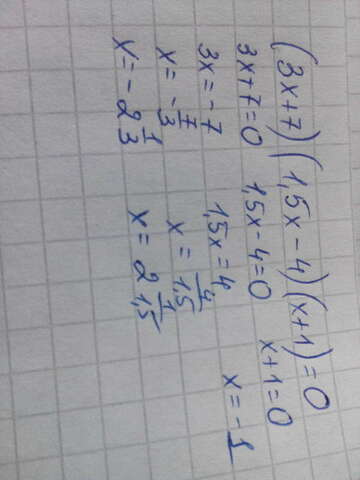 (3x+7)(1,5x-4)(x+1)=0
3x+7=0 1,5x-4=0 x+1=0
3x=-7 1,5x=4 x=-1
x=-7/3 x=4/1,5
x=-2 1/3 x=2 1/1,5